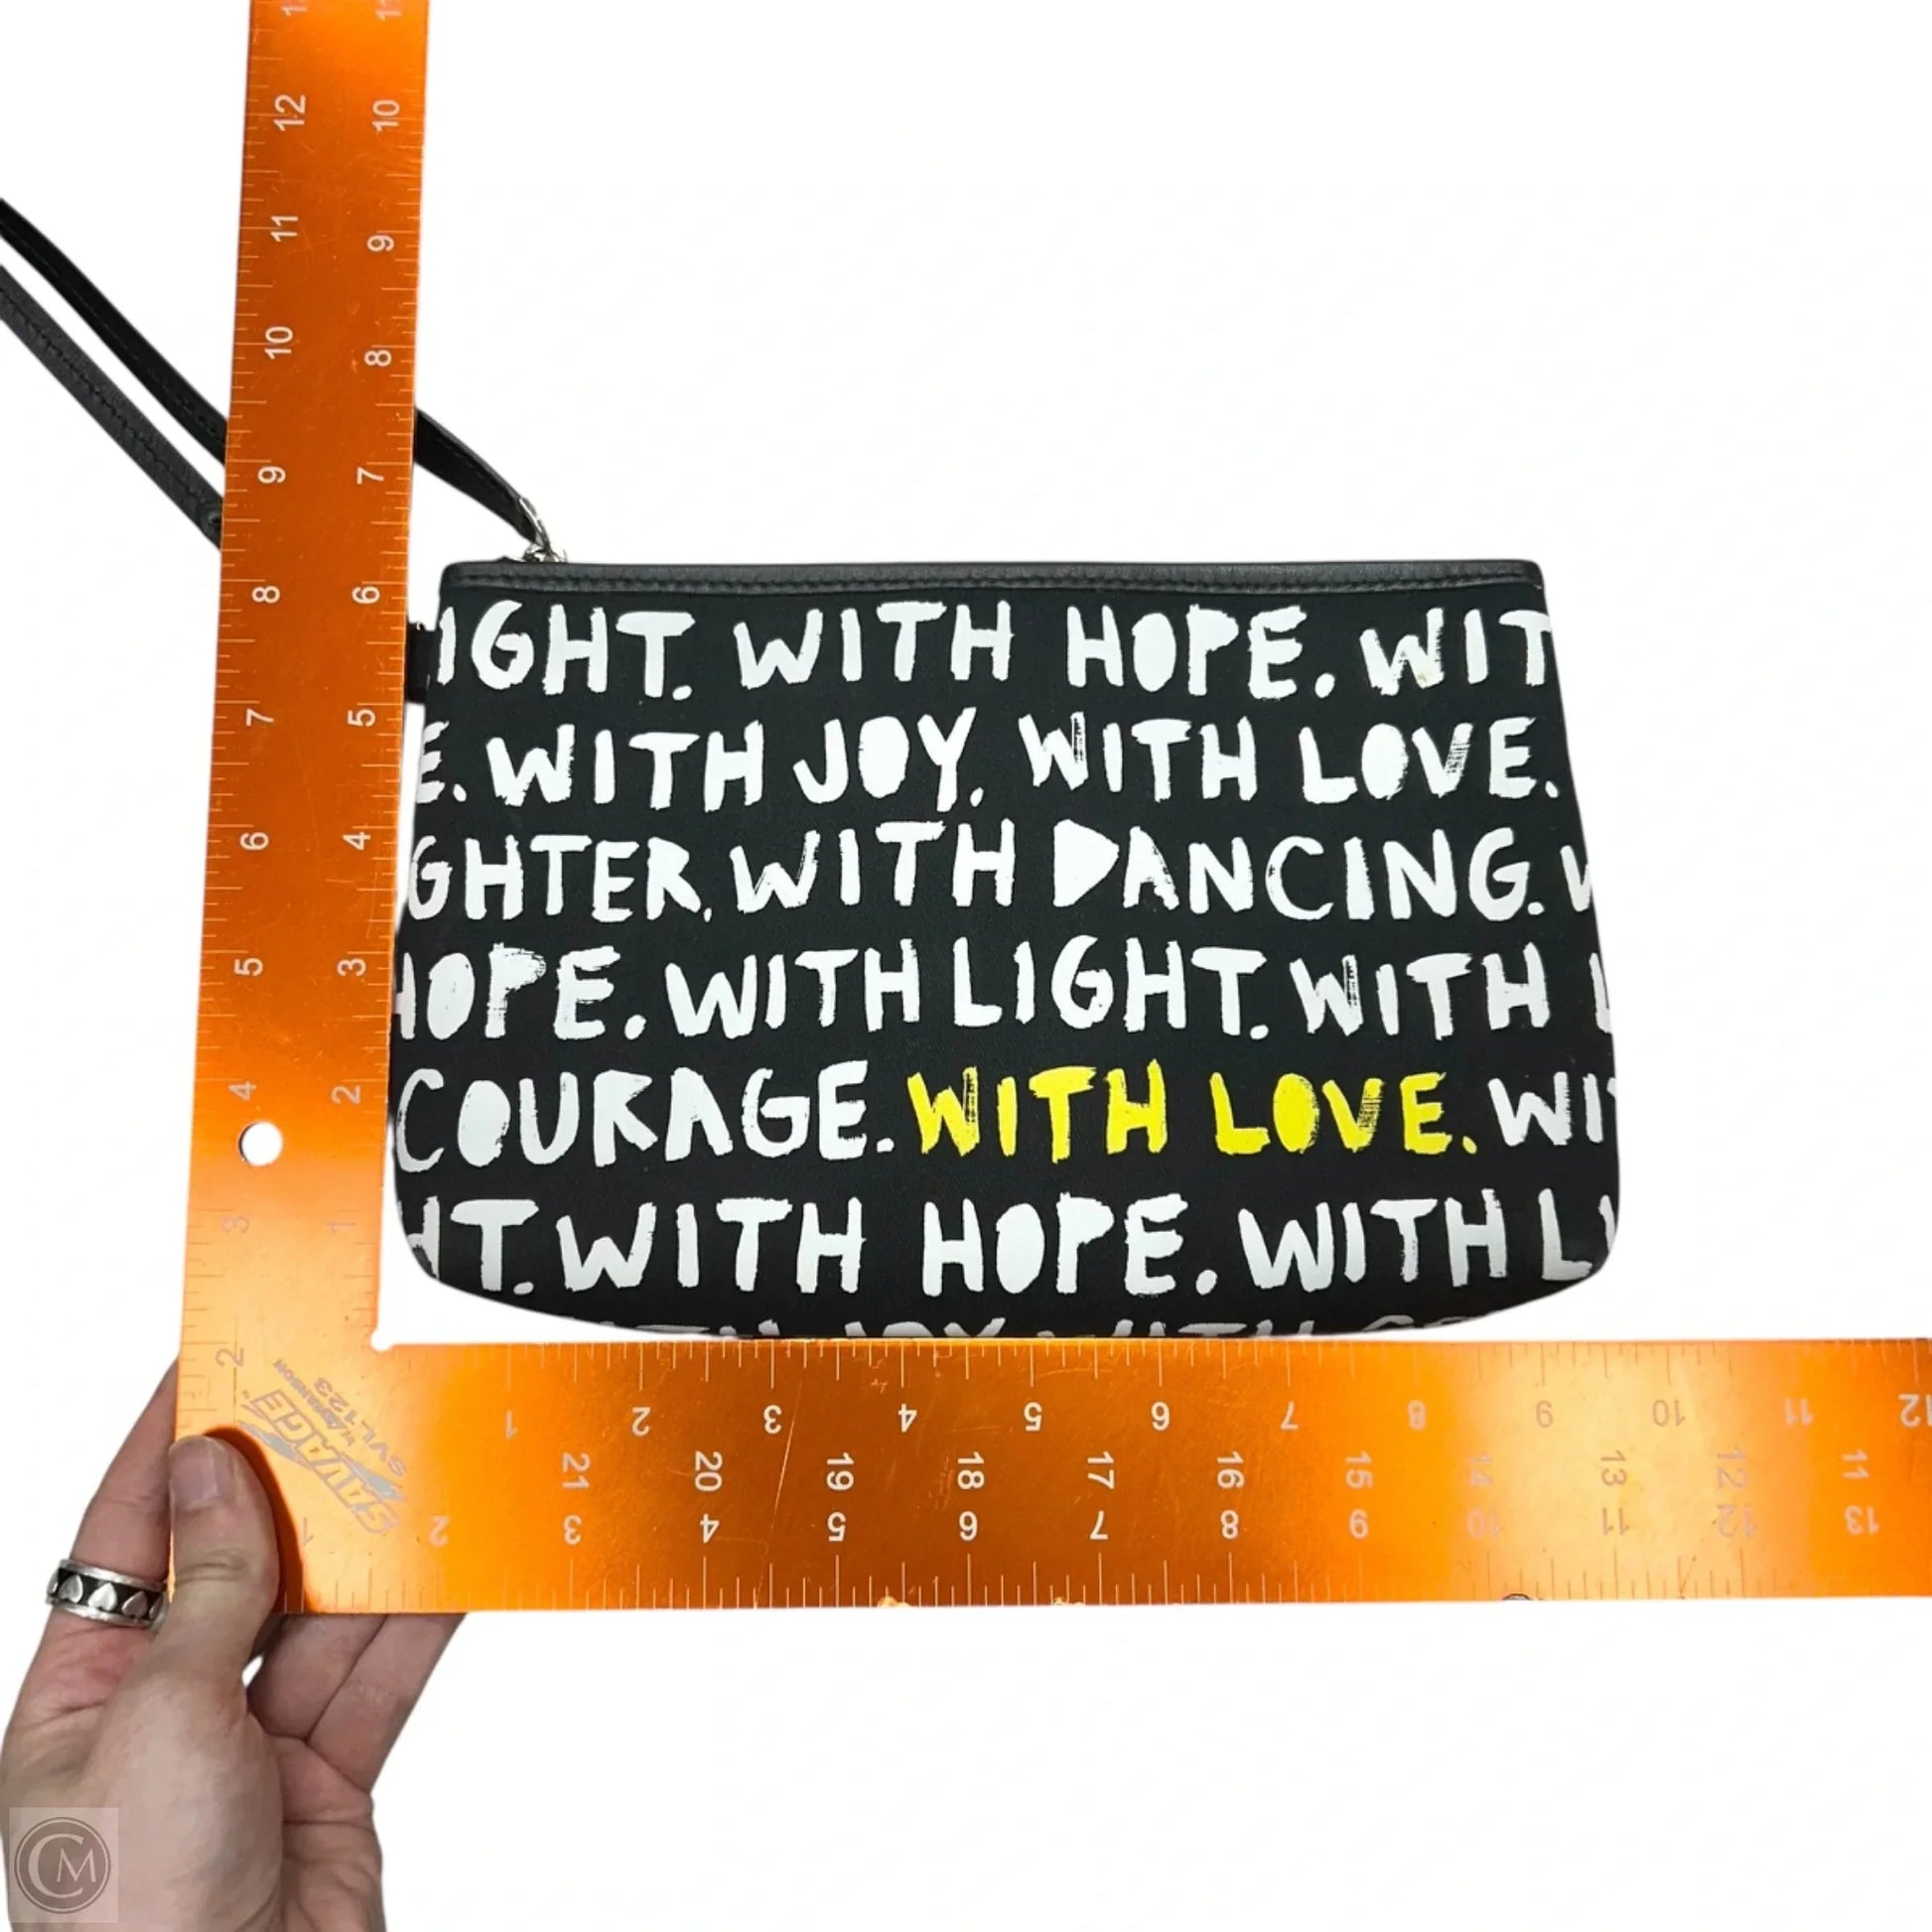 IGHT. WITH HOPE. WIT
E. WITH JOY. WITH LOVE.
GHTER. WITH DANCING. W
HOPE. WITH LIGHT. WITH L
COURAGE. WITH LOVE. WIT
HT. WITH HOPE. WITH LI
WITH JOY. WITH CO
12 11 10 9 8 7 6 5 4 3 2 1
10 9 8 7 6 5 4 3 2 1
1 2 3 4 5 6 7 8 9 10 11 12
21 20 19 18 17 16 15 14 13 12 11
2 3 4 5 6 7 8 9 10 11 12 13
SAVAGE
BY SWANSON
SVL123
CM